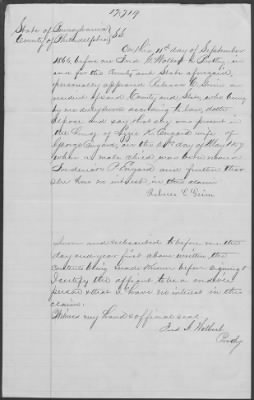 17,719
State of Pennsylvania
County of Philadelphia } SS
On this 11th day of September
1866, before me Fred. G. Wolbert a Notary, in
and for the County and State aforesaid,
personally appeared Rebecca E. Grim a
resident of said County and State, who being
by me duly sworn according to law, doth
depose and say that she was present in
the of Lizzie K. Engard wife of
George Engard, on the day of May 1857
when a male child was born named
Frederick P. Engard and further that
she has no interest in this claim
Rebecca E. Grim
Sworn and subscribed to before me the
day and year first above written the
contents being made known before signing &
I certify the affiant to be a credible
person & that I have no interest in this
claim.
Witness my hand & official seal
Fred. G. Wolbert